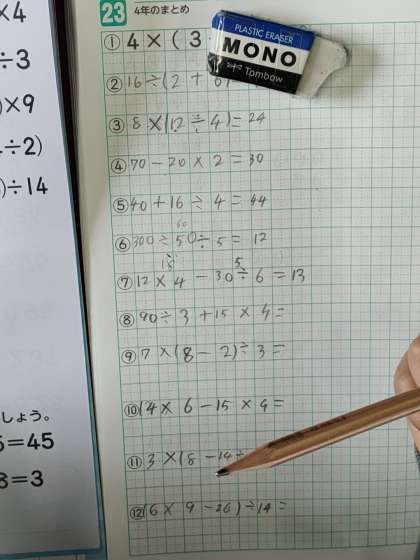 ×4
÷3
)×9
÷2)
)÷14
しょう。
=45
=3
23 4年のまとめ
① 4 × ( 3
PLASTIC ERASER
MONO
Tombow
② 16 ÷ ( 2 +
③ 8 × ( 12 ÷ 4 ) = 24
④ 70 - 20 × 2 = 30
⑤ 40 + 16 ÷ 4 = 44
⑥ 300 ÷ 50 ÷ 5 = 12
⑦ 12 × 4 - 30 ÷ 6 = 13
⑧ 90 ÷ 3 + 15 × 4 =
⑨ 7 × ( 8 - 2 ) ÷ 3 =
⑩ 14 × 6 - 15 × 4 =
⑪ 3 × ( 8 - 14 ÷
⑫ ( 6 × 9 - 26 ) ÷ 14 =